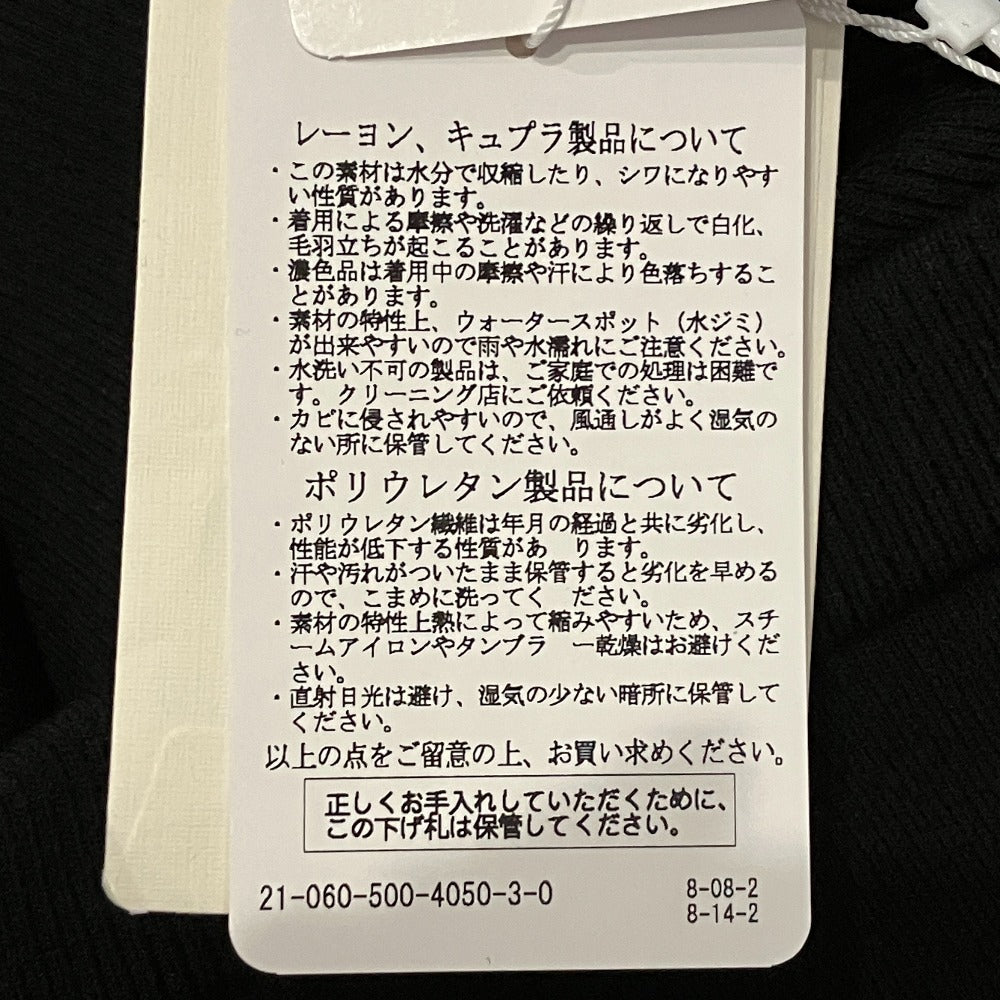 レーヨン、キュプラ製品について
・この素材は水分で収縮したり、シワになりやす
い性質があります。
・着用による摩擦や洗濯などの繰り返しで白化、
毛羽立ちが起こることがあります。
・濃色品は着用中の摩擦や汗により色落ちするこ
とがあります。
・素材の特性上、ウォータースポット（水ジミ）
が出来やすいので雨や水濡れにご注意ください。
・水洗い不可の製品は、ご家庭での処理は困難で
す。クリーニング店にご依頼ください。
・カビに侵されやすいので、風通しがよく湿気の
ない所に保管してください。
ポリウレタン製品について
・ポリウレタン繊維は年月の経過と共に劣化し、
性能が低下する性質があ　ります。
・汗や汚れがついたまま保管すると劣化を早める
ので、こまめに洗ってく　ださい。
・素材の特性上熱によって縮みやすいため、スチ
ームアイロンやタンブラ　ー乾燥はお避けくだ
さい。
・直射日光は避け、湿気の少ない暗所に保管して
ください。
以上の点をご留意の上、お買い求めください。
正しくお手入れしていただくために、
この下げ札は保管してください。
21-060-500-4050-3-0
8-08-2
8-14-2